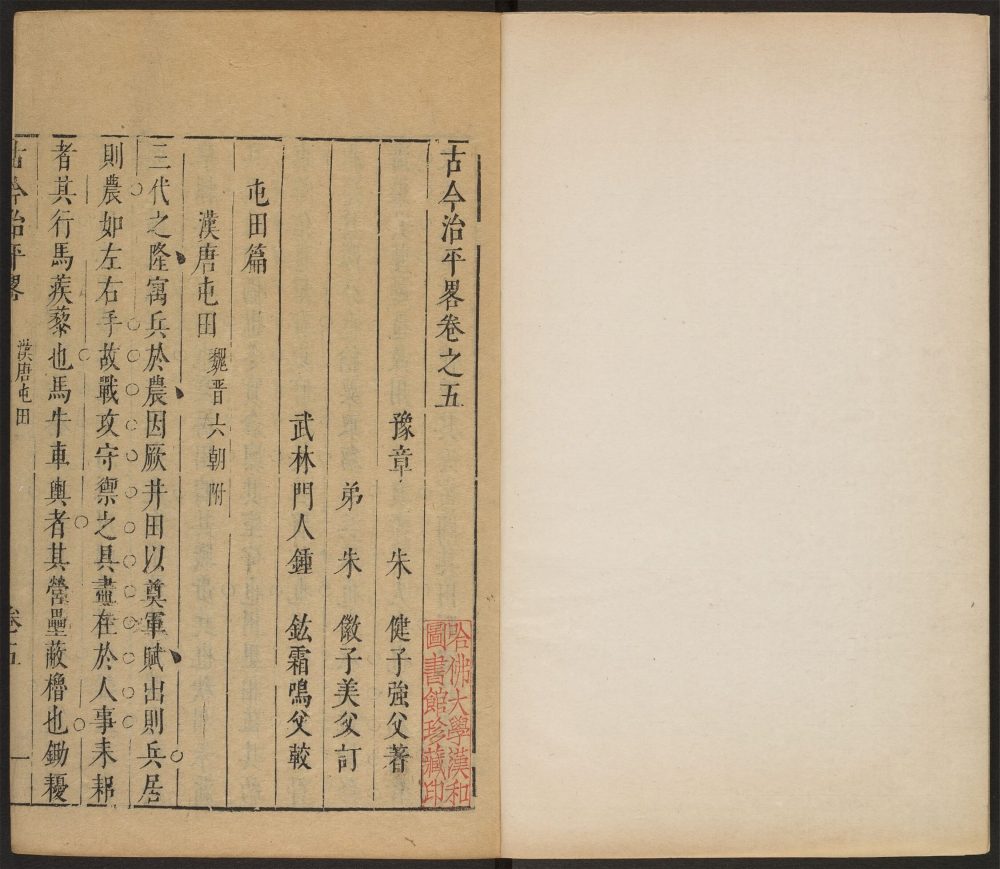 古今治平畧卷之五
豫章 朱 健子強父著
弟 朱 徽子美父訂
武林門人鍾 鉉霜鳴父較
屯田篇
漢唐屯田 魏晉六朝附
三代之隆寓兵於農因厥井田以奠軍賦出則兵居
則農如左右手故戰攻守禦之具盡在於人事耒耜
者其行馬蒺藜也馬牛車輿者其營壘蔽櫓也鋤耰
古今治平畧 漢唐屯田 卷五 一
哈佛大學漢和
圖書館珍藏印